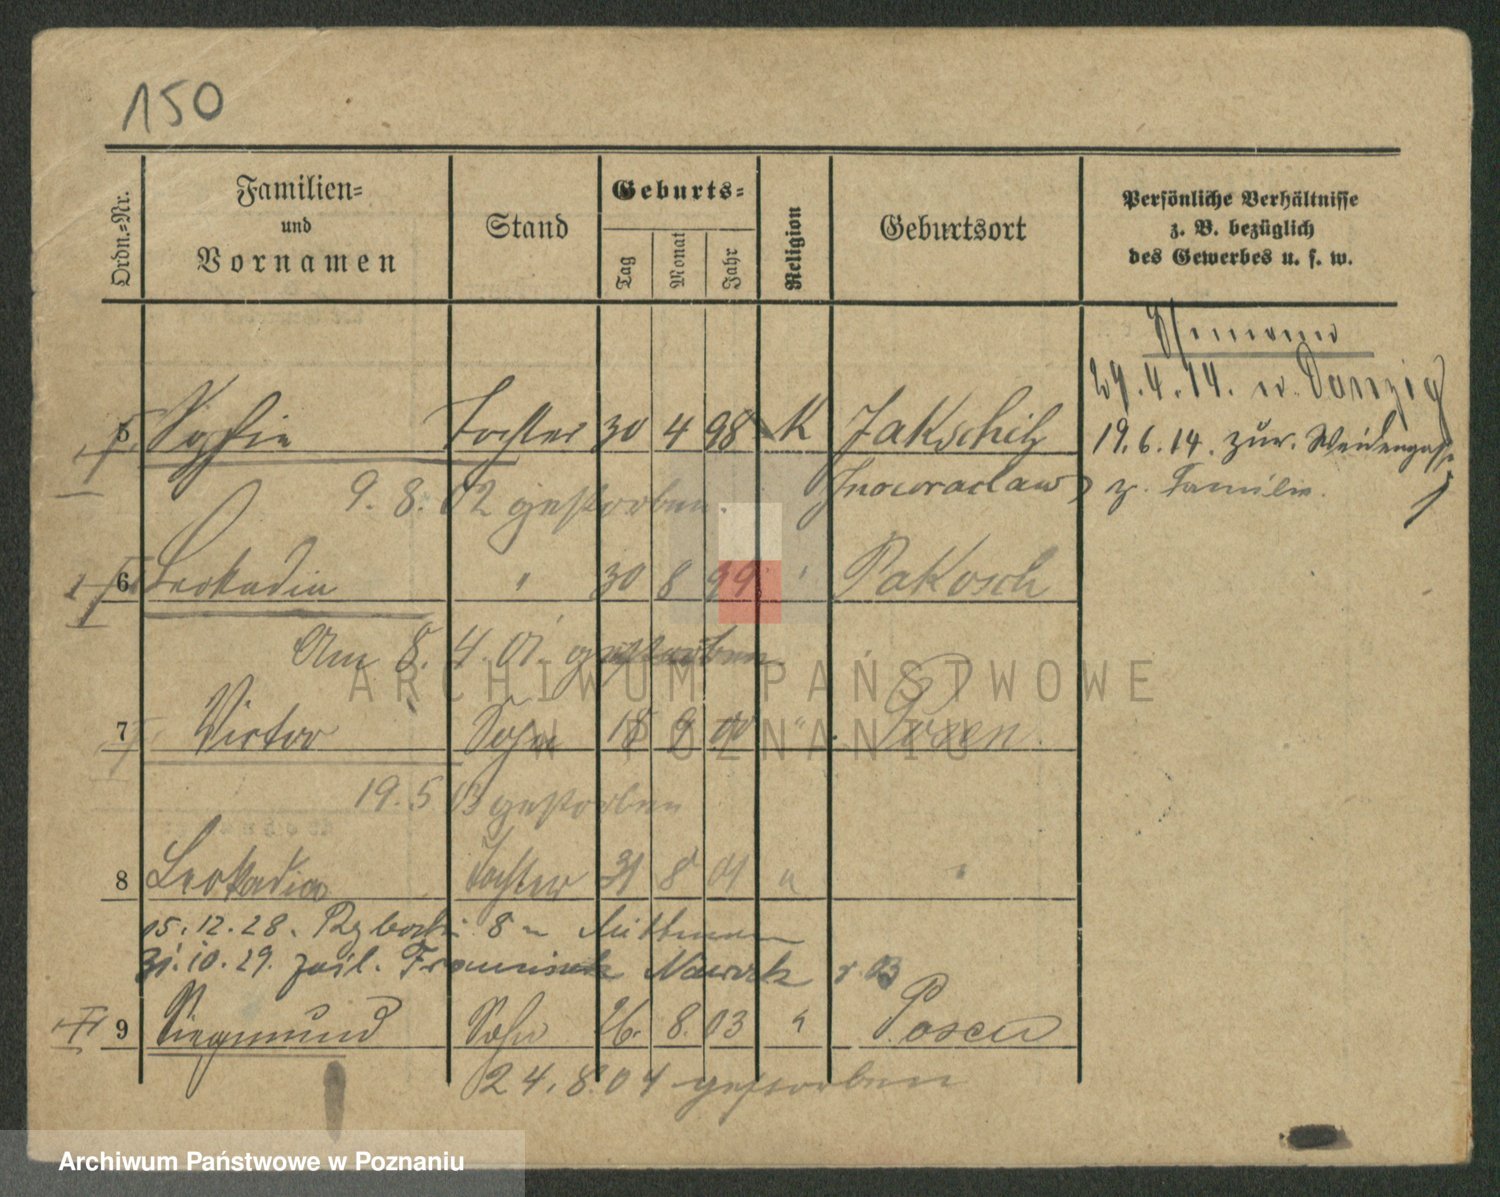 150
Ordn.-Nr.
Familien-
und
Vornamen
Stand
Geburts-
Tag
Monat
Jahr
Religion
Geburtsort
Persönliche Verhältnisse
z. B. bezüglich
des Gewerbes u. s. w.
Ehmann
29.4.14. n. Danzig
5 Sophie Tochter 30 4 98 K Jakschitz
19.6.14. zur. Weidengasse
9. 8. 02 gestorben. Inowraclaw
z. Familie.
6 Leokadia " 30 8 99 " Pakosch
Am 8. 4. 01. gestorben.
ARCHIWUM PAŃSTWOWE
W POZNANIU
7 Victor Sohn 18 9 00 " Posen.
19. 5 03 gestorben
8 Leokadia Tochter 31 8 01 " "
15.12.28. 8
31.10.29. zail. Nawrok
9 Siegmund Sohn 26. 8. 03 " Posen
24. 8. 04 gestorben
Archiwum Państwowe w Poznaniu